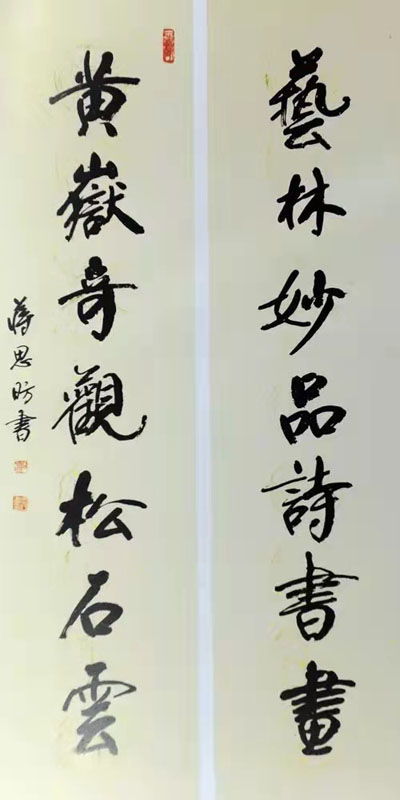 藝林妙品詩書畫
黃嶽奇觀松石雲
蔣思昉書